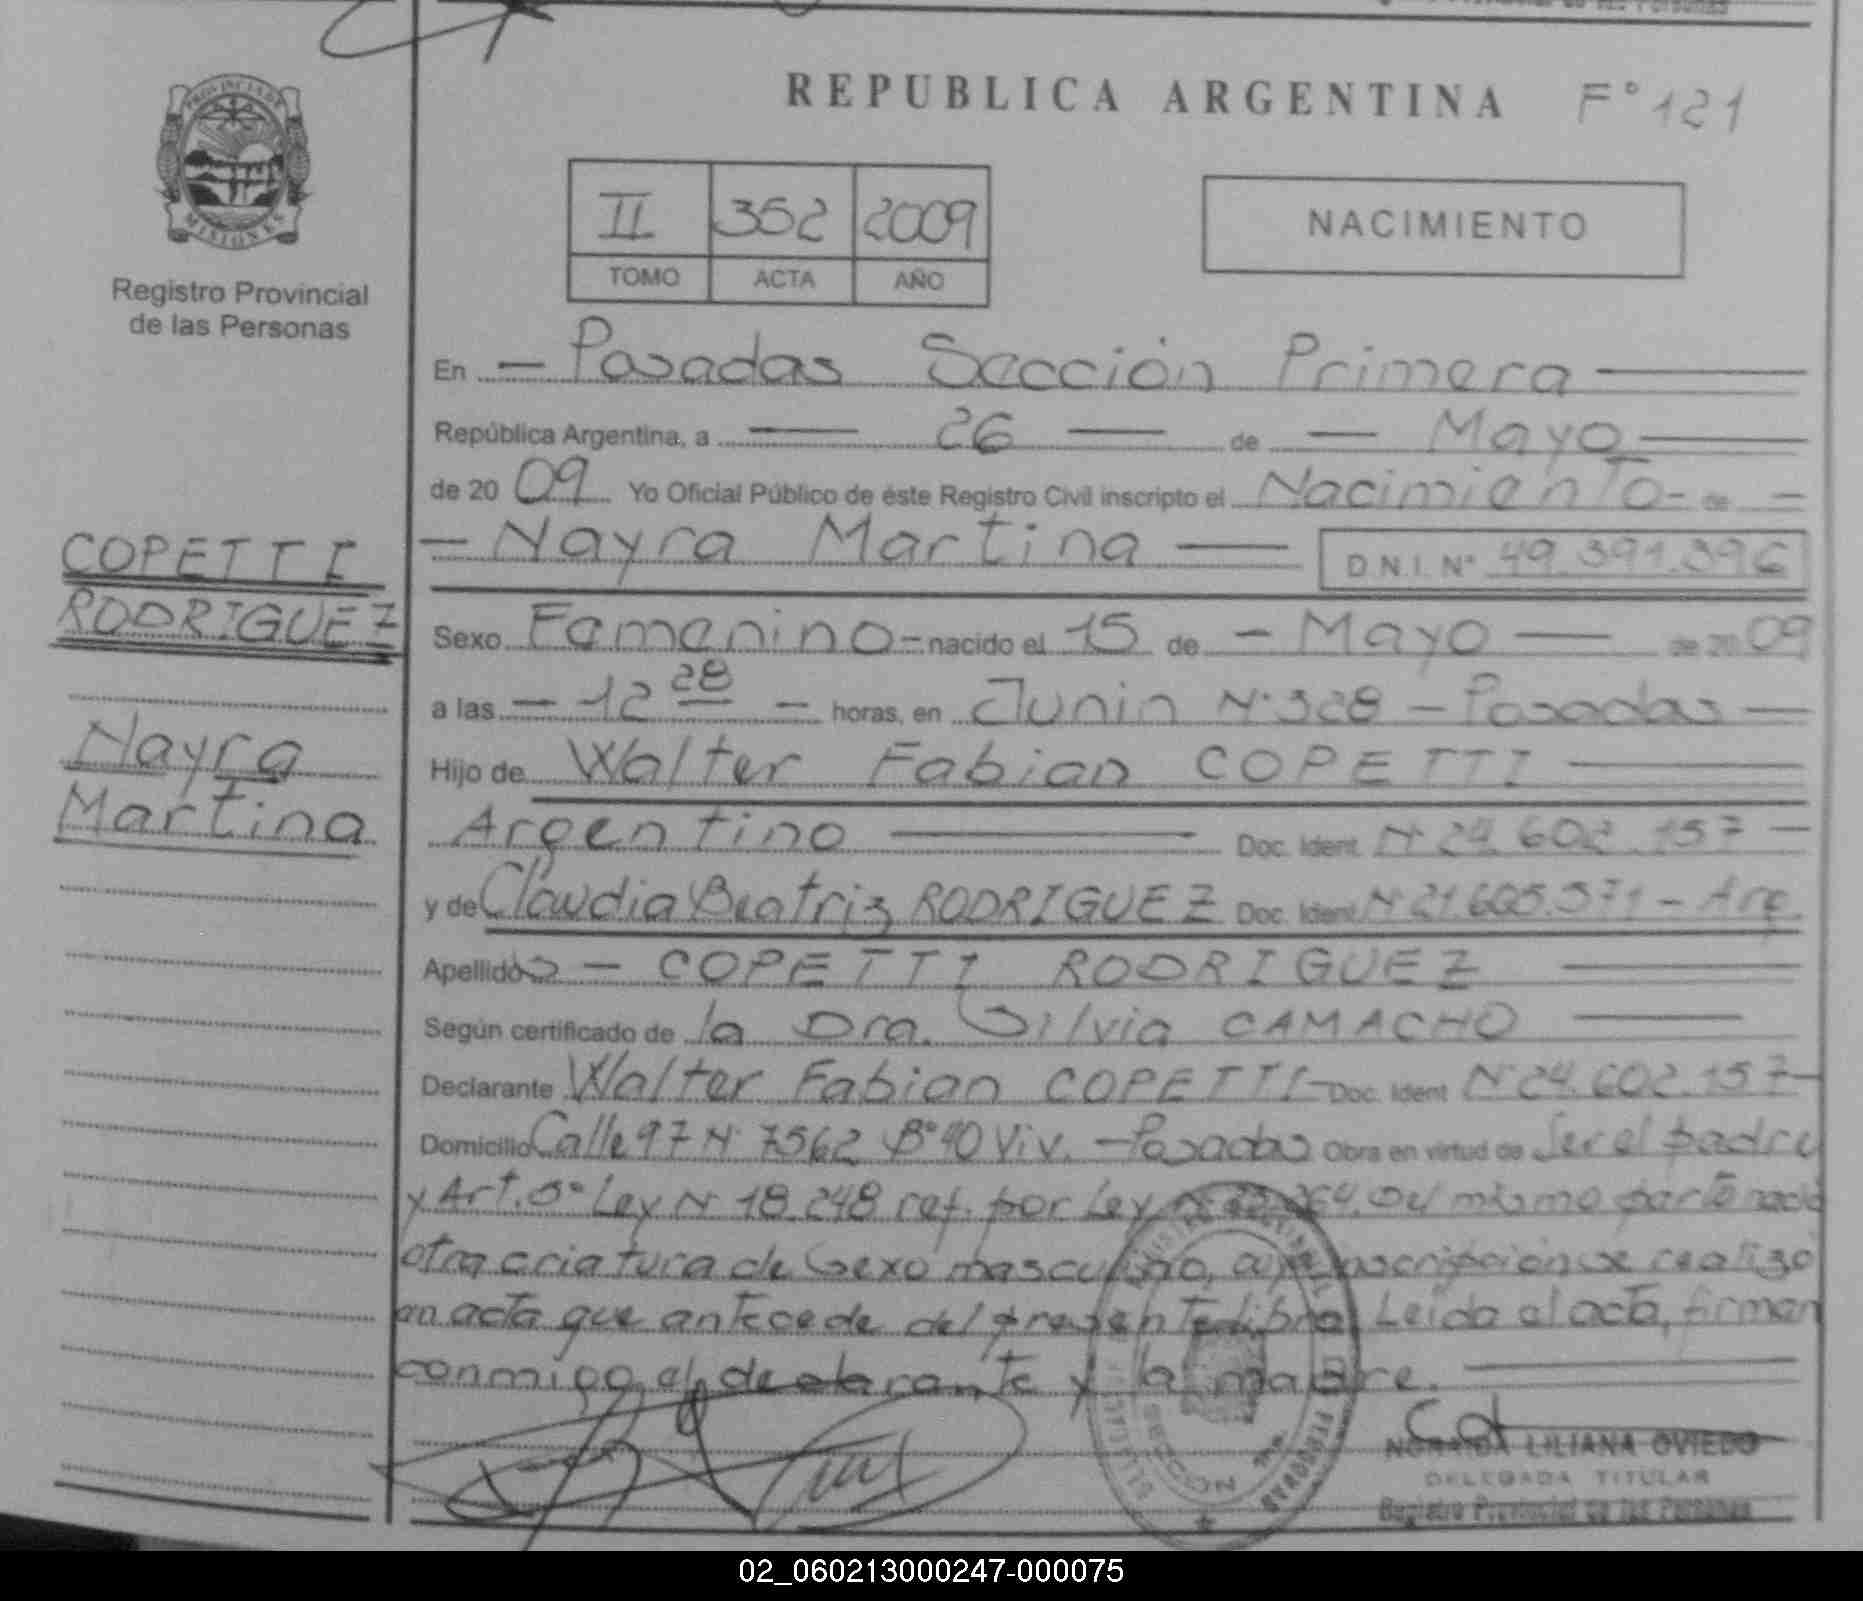 REPUBLICA ARGENTINA F° 121
PROVINCIA DE
MISIONES
Registro Provincial
de las Personas
II 352 2009
TOMO ACTA AÑO
NACIMIENTO
En — Posadas Sección Primera —
República Argentina, a — 26 — de — Mayo —
de 20 09 Yo Oficial Público de éste Registro Civil inscripto el Nacimiento - de —
— Nayra Martina — D.N.I. N° 49.391.396
COPETTI
RODRIGUEZ
Nayra
Martina
Sexo Femenino - nacido el 15 de - Mayo — de 20 09
a las — 12 28 — horas, en Junin N° 328 - Posadas —
Hijo de Walter Fabian COPETTI —
Argentino — Doc. Ident. N° 24.602.157 —
y de Claudia Beatriz RODRIGUEZ Doc. Ident. N° 21.605.571 - Arg.
Apellidos — COPETTI RODRIGUEZ —
Según certificado de la Dra. Silvia CAMACHO —
Declarante Walter Fabian COPETTI - Doc. Ident N° 24.602.157 -
Domicilio Calle 97 N° 7562 B° 90 Viv. - Posadas Obra en virtud de Ser el padre
y Art. 5° Ley N° 18.248 ref. por Ley N° 264. Del mismo parto nació
otra criatura de sexo masculino, cuya inscripción se realizó
en acta que antecede del presente libro. Leida el acta, firman
conmigo, el declarante y la madre. —
NORAIDA LILIANA OVIEDO
DELEGADA TITULAR
Registro Provincial de las Personas
02_060213000247-000075